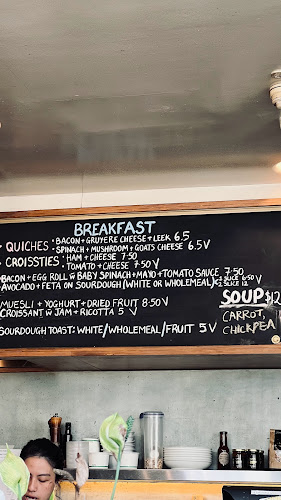 BREAKFAST
• QUICHES : BACON + GRUYERE CHEESE + LEEK 6.5
SPINACH + MUSHROOM + GOATS CHEESE 6.5 V
• CROISSTIES : HAM + CHEESE 7.50
TOMATO + CHEESE 7.50 V
BACON + EGG ROLL W BABY SPINACH + MAYO + TOMATO SAUCE 7.50
AVOCADO + FETA ON SOURDOUGH (WHITE OR WHOLEMEAL) 1 SLICE 6.50 V
2 SLICE 12
MUESLI + YOGHURT + DRIED FRUIT 8.50 V
CROISSANT W JAM + RICOTTA 5 V
SOURDOUGH TOAST: WHITE/WHOLEMEAL/FRUIT 5 V
SOUP $12
CARROT,
CHICKPEA